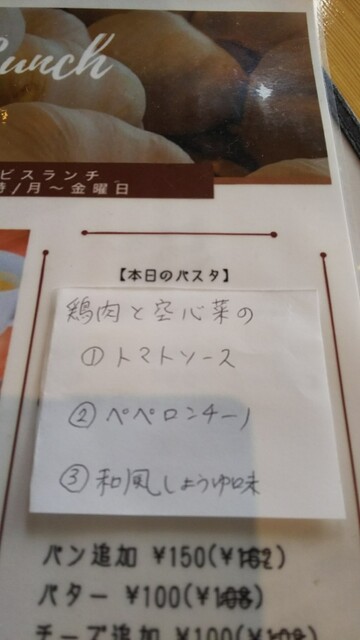 Lunch
ビスランチ
時/月～金曜日
【本日のパスタ】
鶏肉と空心菜の
①トマトソース
②ペペロンチーノ
③和風しょうゆ味
パン追加 ¥150(¥162)
バター ¥100(¥108)
チーズ追加 ¥100(¥108)